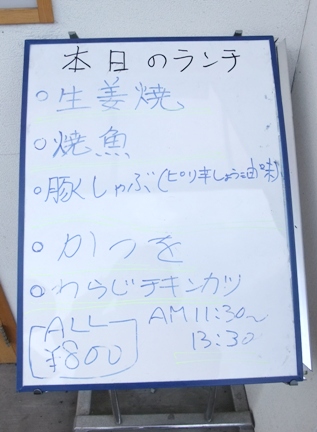 本日のランチ
○生姜焼
○焼魚
○豚しゃぶ(ピリ辛しょう油味)
○かつを
○わらじチキンカツ
ALL
¥800
AM11:30~
13:30